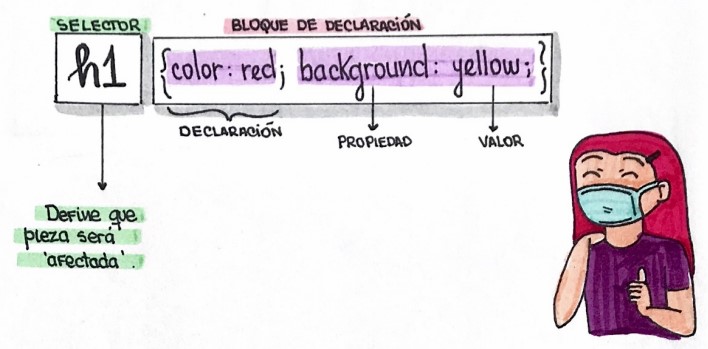 SELECTOR
BLOQUE DE DECLARACIÓN
h1
{color: red; background: yellow;}
DECLARACIÓN
PROPIEDAD
VALOR
Define que
pieza será
'afectada'.